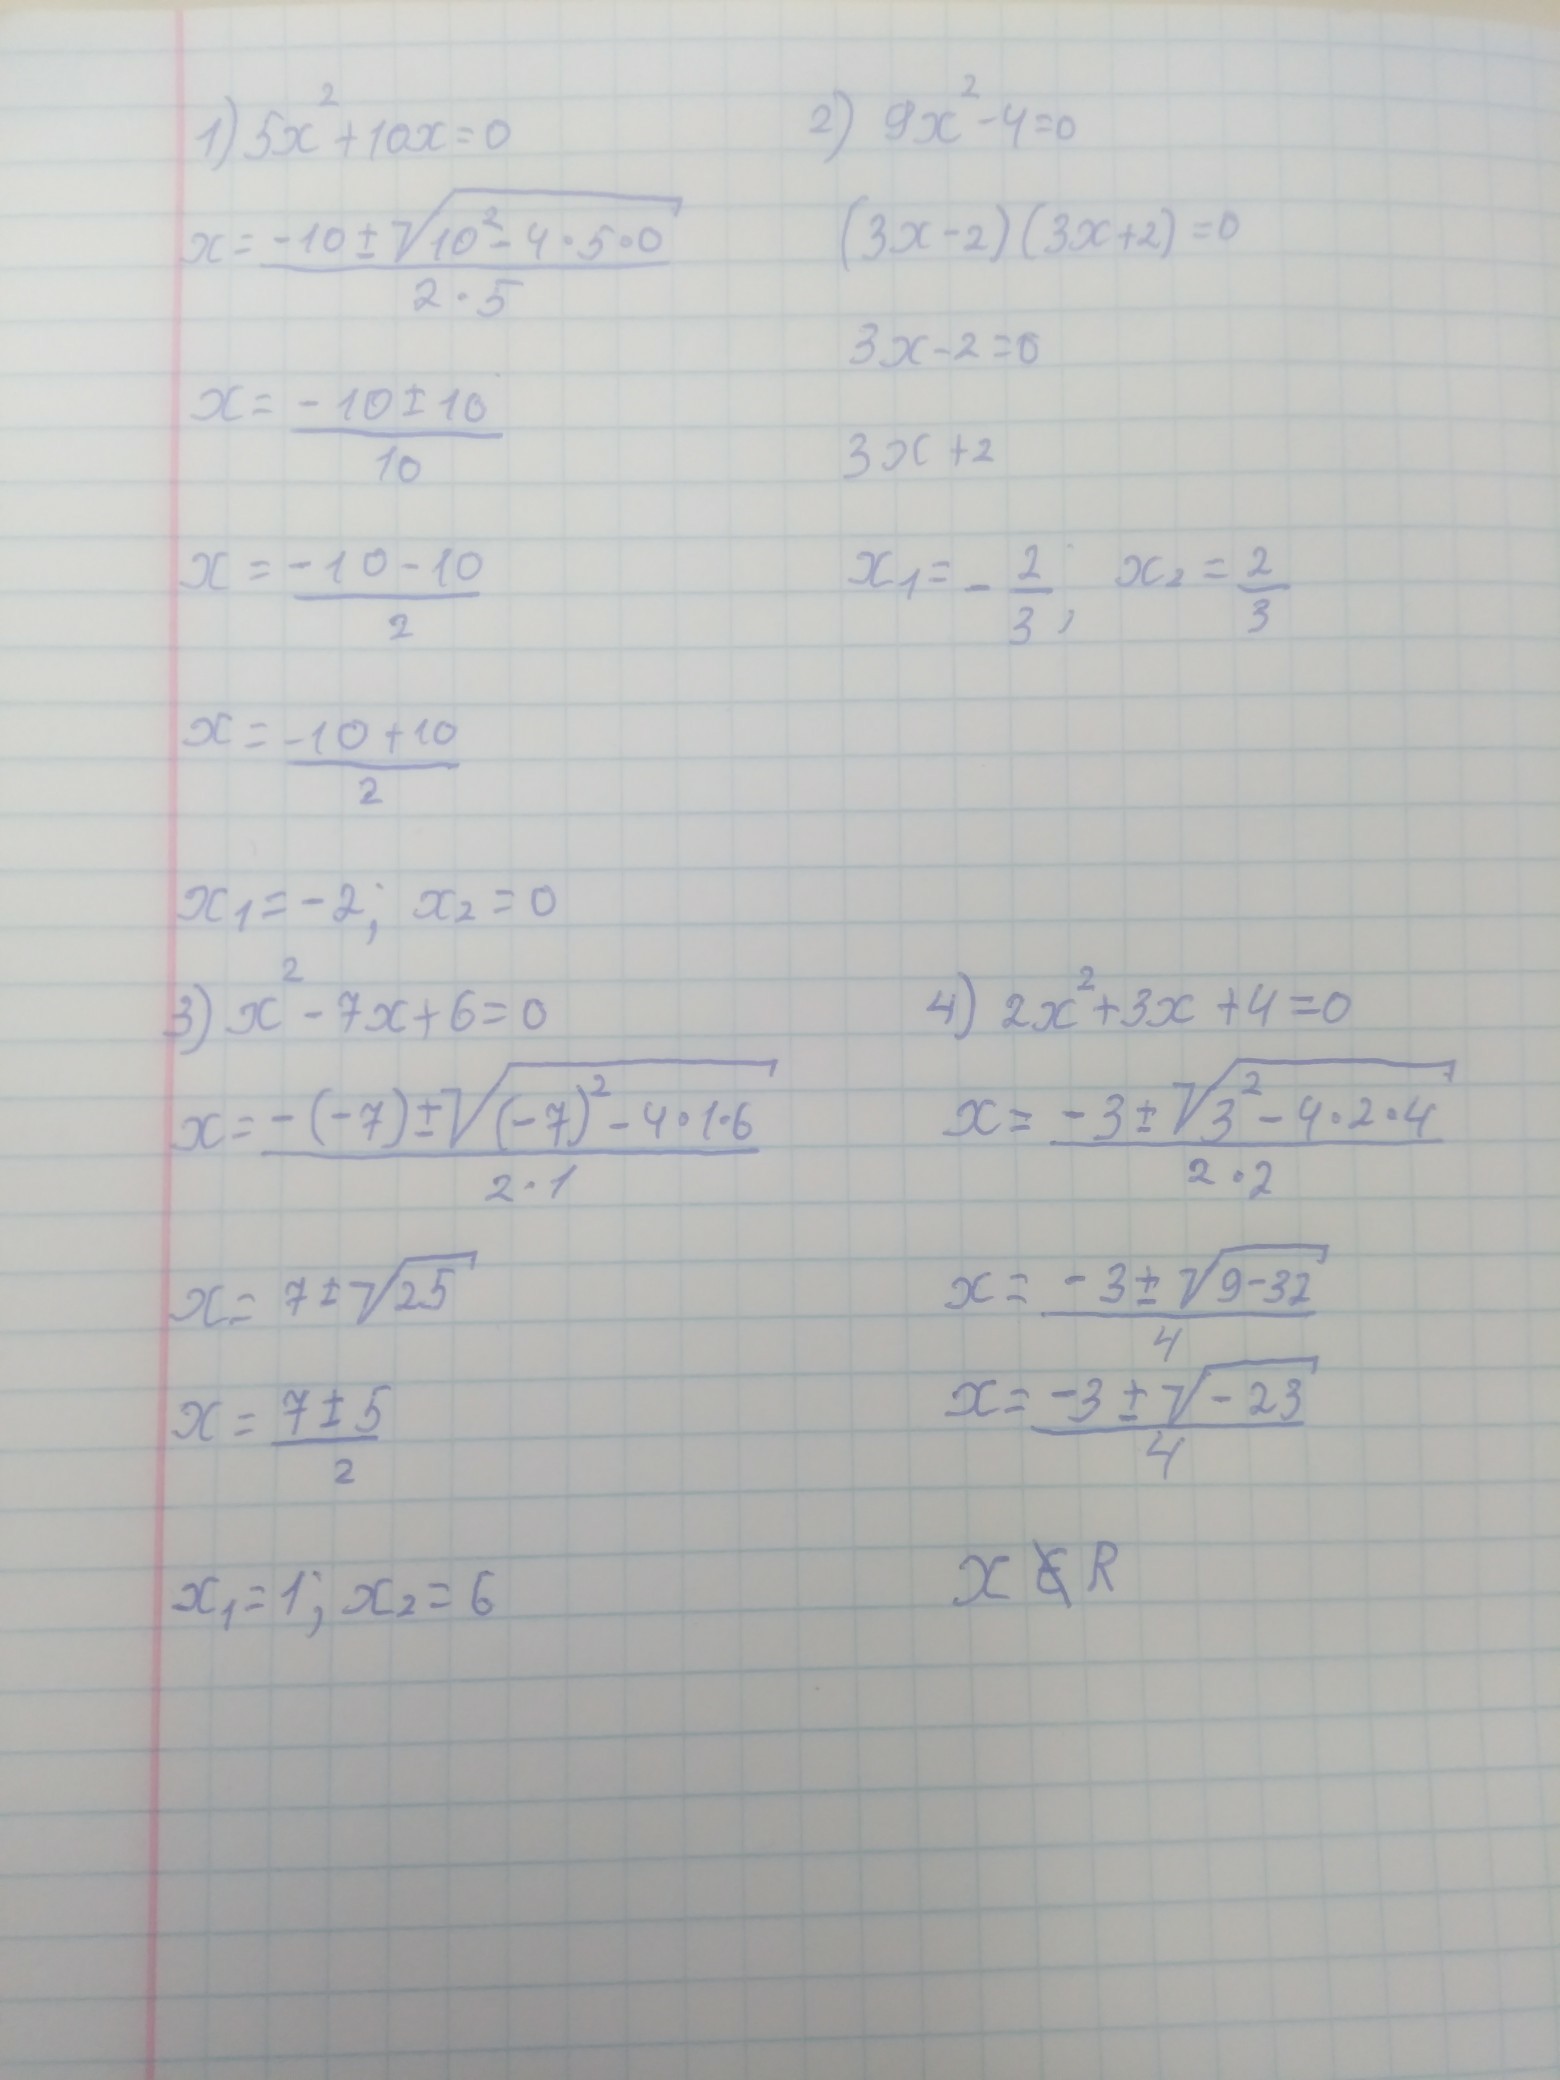 1) 5x² + 10x = 0
x = (-10 ± √(10² - 4 · 5 · 0)) / (2 · 5)
x = (-10 ± 10) / 10
x = (-10 - 10) / 2
x = (-10 + 10) / 2
x₁ = -2; x₂ = 0
2) 9x² - 4 = 0
(3x - 2)(3x + 2) = 0
3x - 2 = 0
3x + 2
x₁ = -2/3; x₂ = 2/3
3) x² - 7x + 6 = 0
x = (-(-7) ± √((-7)² - 4 · 1 · 6)) / (2 · 1)
x = 7 ± √25
x = (7 ± 5) / 2
x₁ = 1; x₂ = 6
4) 2x² + 3x + 4 = 0
x = (-3 ± √(3² - 4 · 2 · 4)) / (2 · 2)
x = (-3 ± √(9 - 32)) / 4
x = (-3 ± √(-23)) / 4
x ∉ R